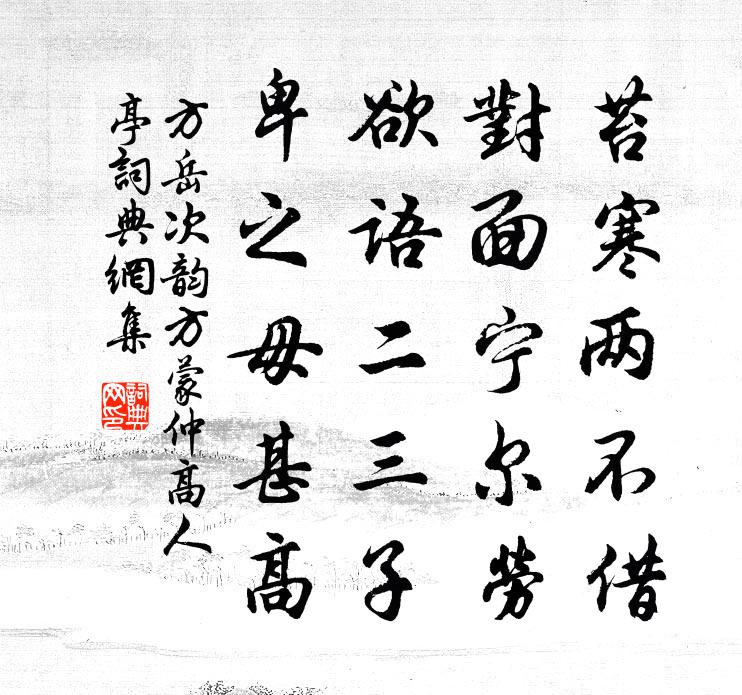 苔寒两不借
對面宁尔勞
欲語二三子
卑之毋甚高
方岳次韵方蒙仲高人
亭詞典網集
詞典
网印